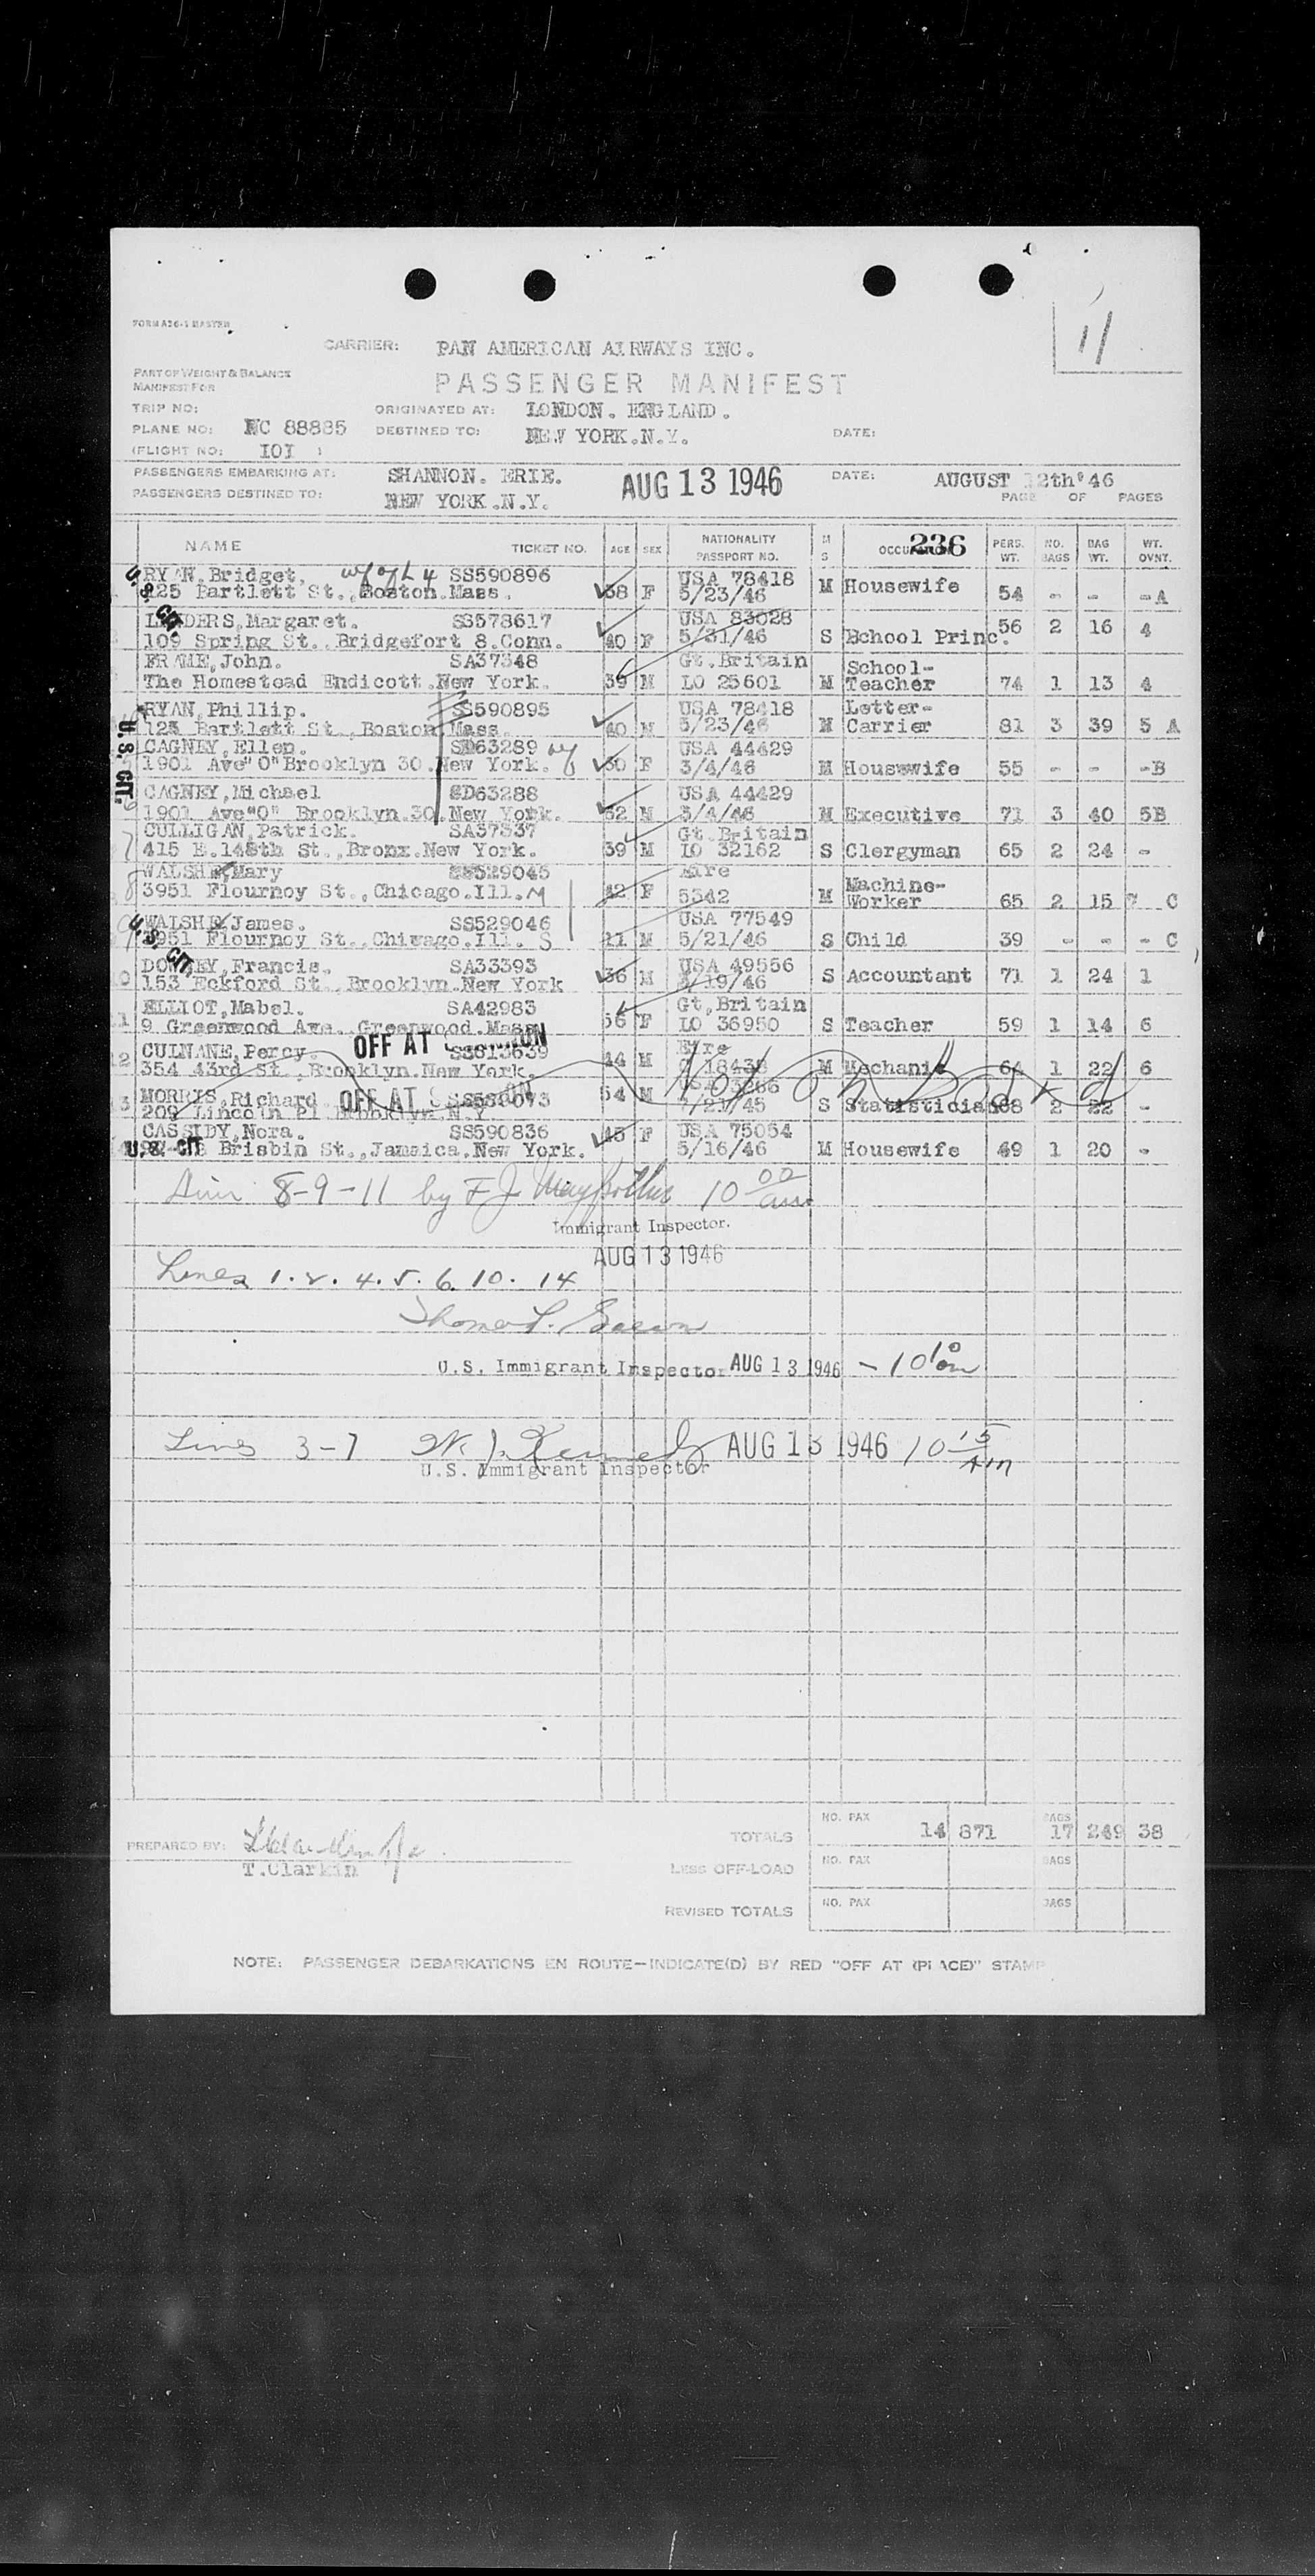 11
FORM A26-1 MASTER
CARRIER: PAN AMERICAN AIRWAYS INC.
PART OF WEIGHT & BALANCE
MANIFEST FOR
PASSENGER MANIFEST
TRIP NO: ORIGINATED AT: LONDON. ENGLAND.
PLANE NO: NC 88885 DESTINED TO: NEW YORK.N.Y. DATE:
(FLIGHT NO: IOI )
PASSENGERS EMBARKING AT: SHANNON. ERIE. AUG 13 1946 DATE: AUGUST 12th'46
PASSENGERS DESTINED TO: NEW YORK.N.Y. PAGE OF PAGES
NAME TICKET NO. AGE SEX NATIONALITY PASSPORT NO. M S OCCUPATION 236 PERS. WT. NO. BAGS BAG WT. WT. OVNT.
RYAN, Bridget, wf of L 4 SS590896 38 F USA 78418 M Housewife 54 - - -A
125 Bartlett St., Boston.Mass. 5/23/46
U.S. CIT.
Margaret. SS578617 USA 83028 56 2 16 4
109 Spring St., Bridgefort 8.Conn. 40 F 5/31/46 S School Princ.
FRAME, John. SA37348 Gt.Britain School-
The Homestead Endicott.New York. 39 M LO 25601 M Teacher 74 1 13 4
RYAN, Phillip. SS590895 USA 78418 Letter-
125 Bartlett St., Boston.Mass. 40 M 5/23/46 M Carrier 81 3 39 5 A
U.S. CIT.
CAGNEY, Ellen. SD63289 wf USA 44429
1901 Ave"O"Brooklyn 30.New York. 30 F 3/4/46 M Housewife 55 - - -B
CAGNEY, Michael SD63288 USA 44429
1901 Ave"O" Brooklyn.30.New York. 32 M 3/4/46 M Executive 71 3 40 5B
CULLIGAN, Patrick. SA37337 Gt.Britain
7 415 E.148th St., Bronx.New York. 39 M LO 32162 S Clergyman 65 2 24 -
WALSHE, Mary SS529045 Eire Machine-
8 3951 Flournoy St., Chicago.Ill. M 42 F 5342 M Worker 65 2 15 7 C
9 WALSHE, James. SS529046 USA 77549
3951 Flournoy St., Chiwago.Ill. S 11 M 5/21/46 S Child 39 - - - C
U.S. CIT.
DOWNEY, Francis. SA33393 USA 49556
10 153 Eckford St., Brooklyn.New York 36 M /19/46 S Accountant 71 1 24 1
ELLIOT, Mabel. SA42983 Gt.Britain
11 9 Greenwood Ave. Greenwood.Mass. 56 F LO 36950 S Teacher 59 1 14 6
OFF AT SHANNON
12 CULNANE, Percy. SS613639 44 M Eire
354 43rd St., Brooklyn.New York. 18438 M Mechanic 64 1 22 6
Not on Board
OFF AT SHANNON
13 MORRIS, Richard 54 M USA
209 Lincoln Pl Brooklyn N.Y. /21/45 S Statistician 68 2 22 -
CASSIDY, Nora. SS590836 45 F USA 75054
U.S. CIT. Brisbin St., Jamaica.New York. 5/16/46 M Housewife 49 1 20 -
8-9-11 by F J 10 00 am
Immigrant Inspector.
AUG 13 1946
Lines 1. 2. 4. 5. 6. 10. 14
U.S. Immigrant Inspector AUG 13 1946 - 10 10 am
Lines 3-7 W. J. Kennedy AUG 13 1946 10 15 AM
U.S. Immigrant Inspector
TOTALS NO. PAX 14 871 BAGS 17 249 38
PREPARED BY:
T.Clarkin
LESS OFF-LOAD NO. PAX BAGS
REVISED TOTALS NO. PAX BAGS
NOTE: PASSENGER DEBARKATIONS EN ROUTE—INDICATE(D) BY RED "OFF AT (PLACE)" STAMP